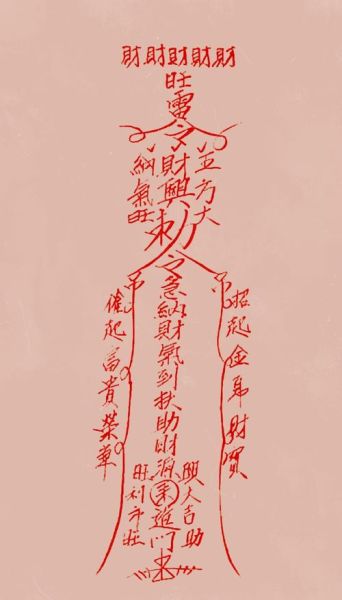 財財財財財
旺
雷
令
五方大
財興
納氣旺
敕
令
急納財氣到扶助財源來進門
招起金帛財寶
催起富貴榮華
興大吉助
旺利市旺